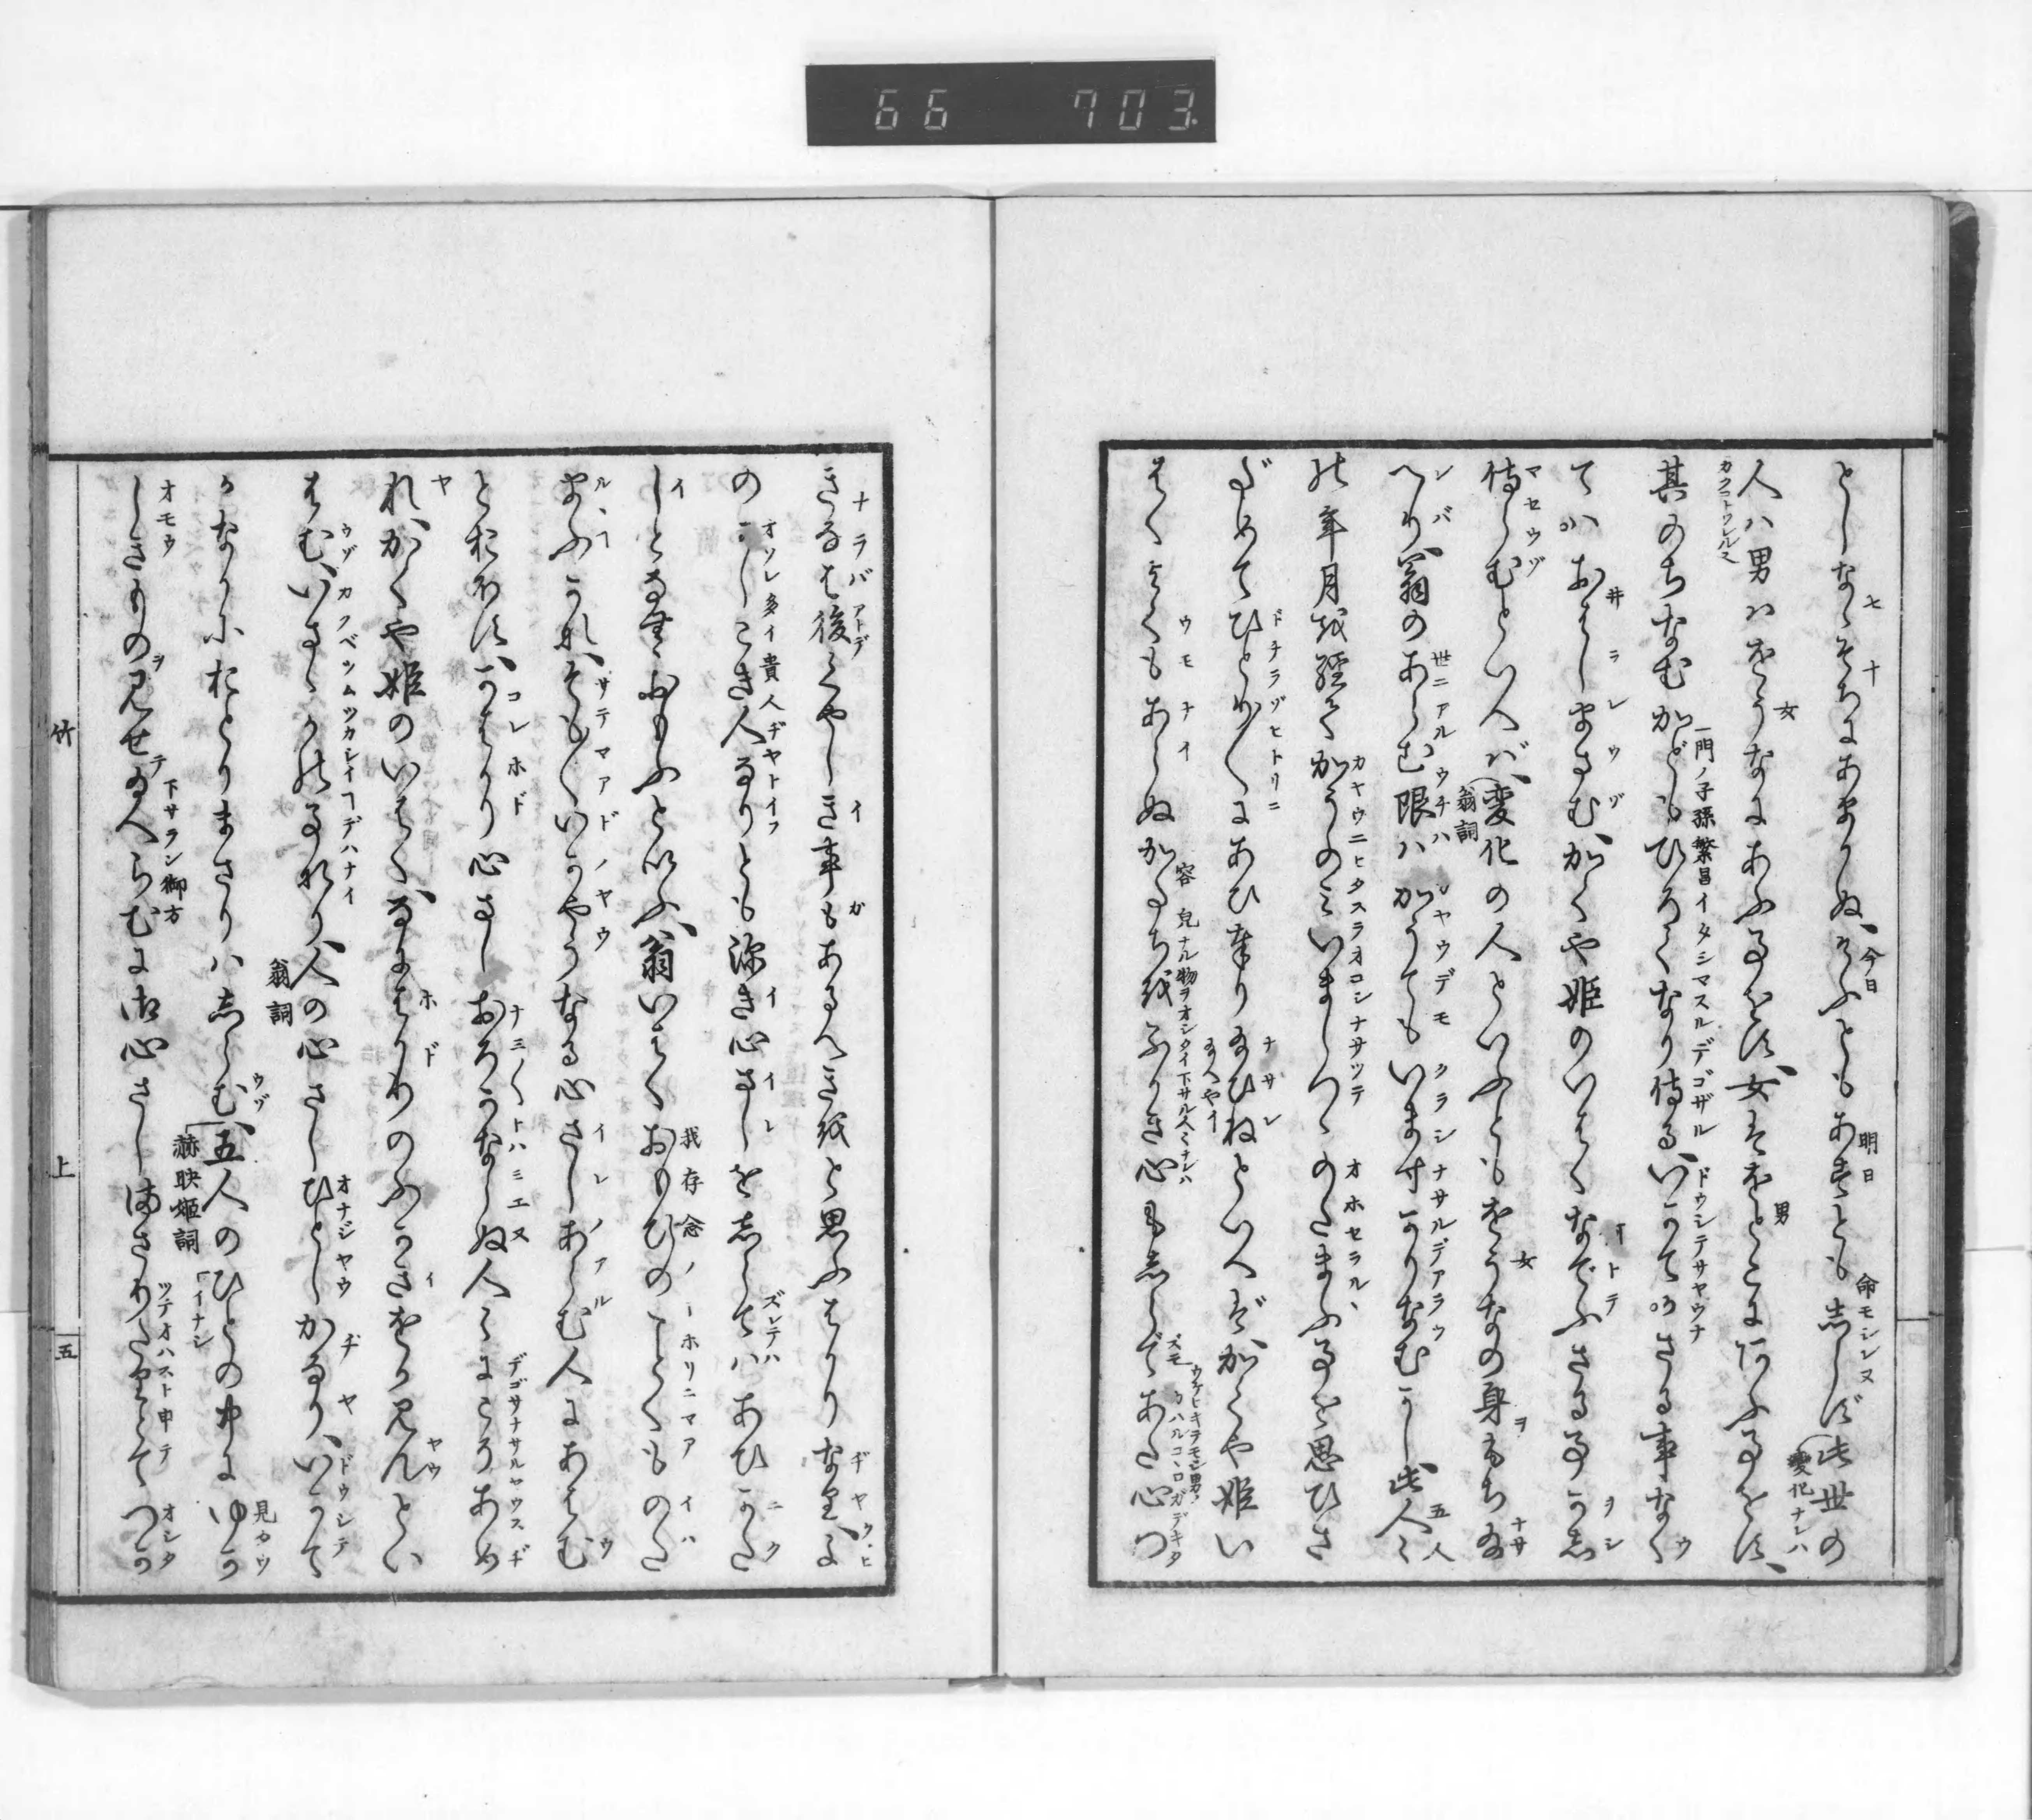 66 703
としなゝそちにあまりぬ、けふともあすとも志らず此世の
七十 今日 明日 命モシレヌ 変化ナレハ
人ハ男ハをうなにあふ事をす、女ハをとこにあふ事をす、
女 男
其のちなむかどもひろくなり侍る、いかてかさる事なく
一門ノ子孫繁昌イタシマスルデゴザル ドウシテサヤウナ ウ
てハおはしまさむ、かくや姫のいはくなでふさる事か志
井ラレウゾ ナトテ ヲシ
侍らむといへバ、変化の人といふともをうなの身もち給
マセウゾ 翁詞 女 ヲ ナサ
へり、翁のあらむ限ハかうてもいますかりなむかし此人々
レバ 世ニアルウチハ カヤウデモクラシナサルデアラウ 五人
の年月を経てかうのミいましつゝのたまふ事を思ひさ
カヤウニヒタスラオコシナサツテ オホセラルヽ
だめてひとり/\にあひ奉り給ひねといへバ、かくや姫い
ドチラゾヒトリニ ナサレ 給へやイ
はくよくもあらぬかたちをふかき心も志らであだ心つ
ウモナイ
きなば後くやしき事もあるへきをと思ふはかりなり、よ
ナラバ アトデ イ ガ ヂヤワヒ
のかしこき人なりとも深き心さしを志らてハあひかた
オソレ多イ貴人ヂヤトイフ イ イレ ズシテハ ニク
しとなむおもふといふ、翁いはくおもひのことくものた
イ 我存念ノ イハ
まふかな、そも/\いかやうなる心さしあらむ人にあはむ
サテマア ドノヤウ イレノアル ウ
とおほす、かはかり心さしおろかならぬ人々にこそあめ
コレホド ナミ/\トハミエヌ デゴサナサルヤウスヂ
れ、かくや姫のいはく、なにはかりのふかきをか見んとい
ヤ ホド イ ヤウ
はむ、いさゝかの事なり、人の心さしひとしかるなり、いかて
ウゾ カクベツムツカシイコデハナイ オナジヤウヂヤ ドウシテ
かなかにおとりまさりハ志らむ、五人のひとの中にゆか
翁詞 ウゾ 赫映姫詞 イナシ 見タウ
しきものを見せ給へらむに御心さしまさりたりとてつか
オモウ ヲ テ 下サラン御方 ツテオハスト申テ オシタ
竹 上 五